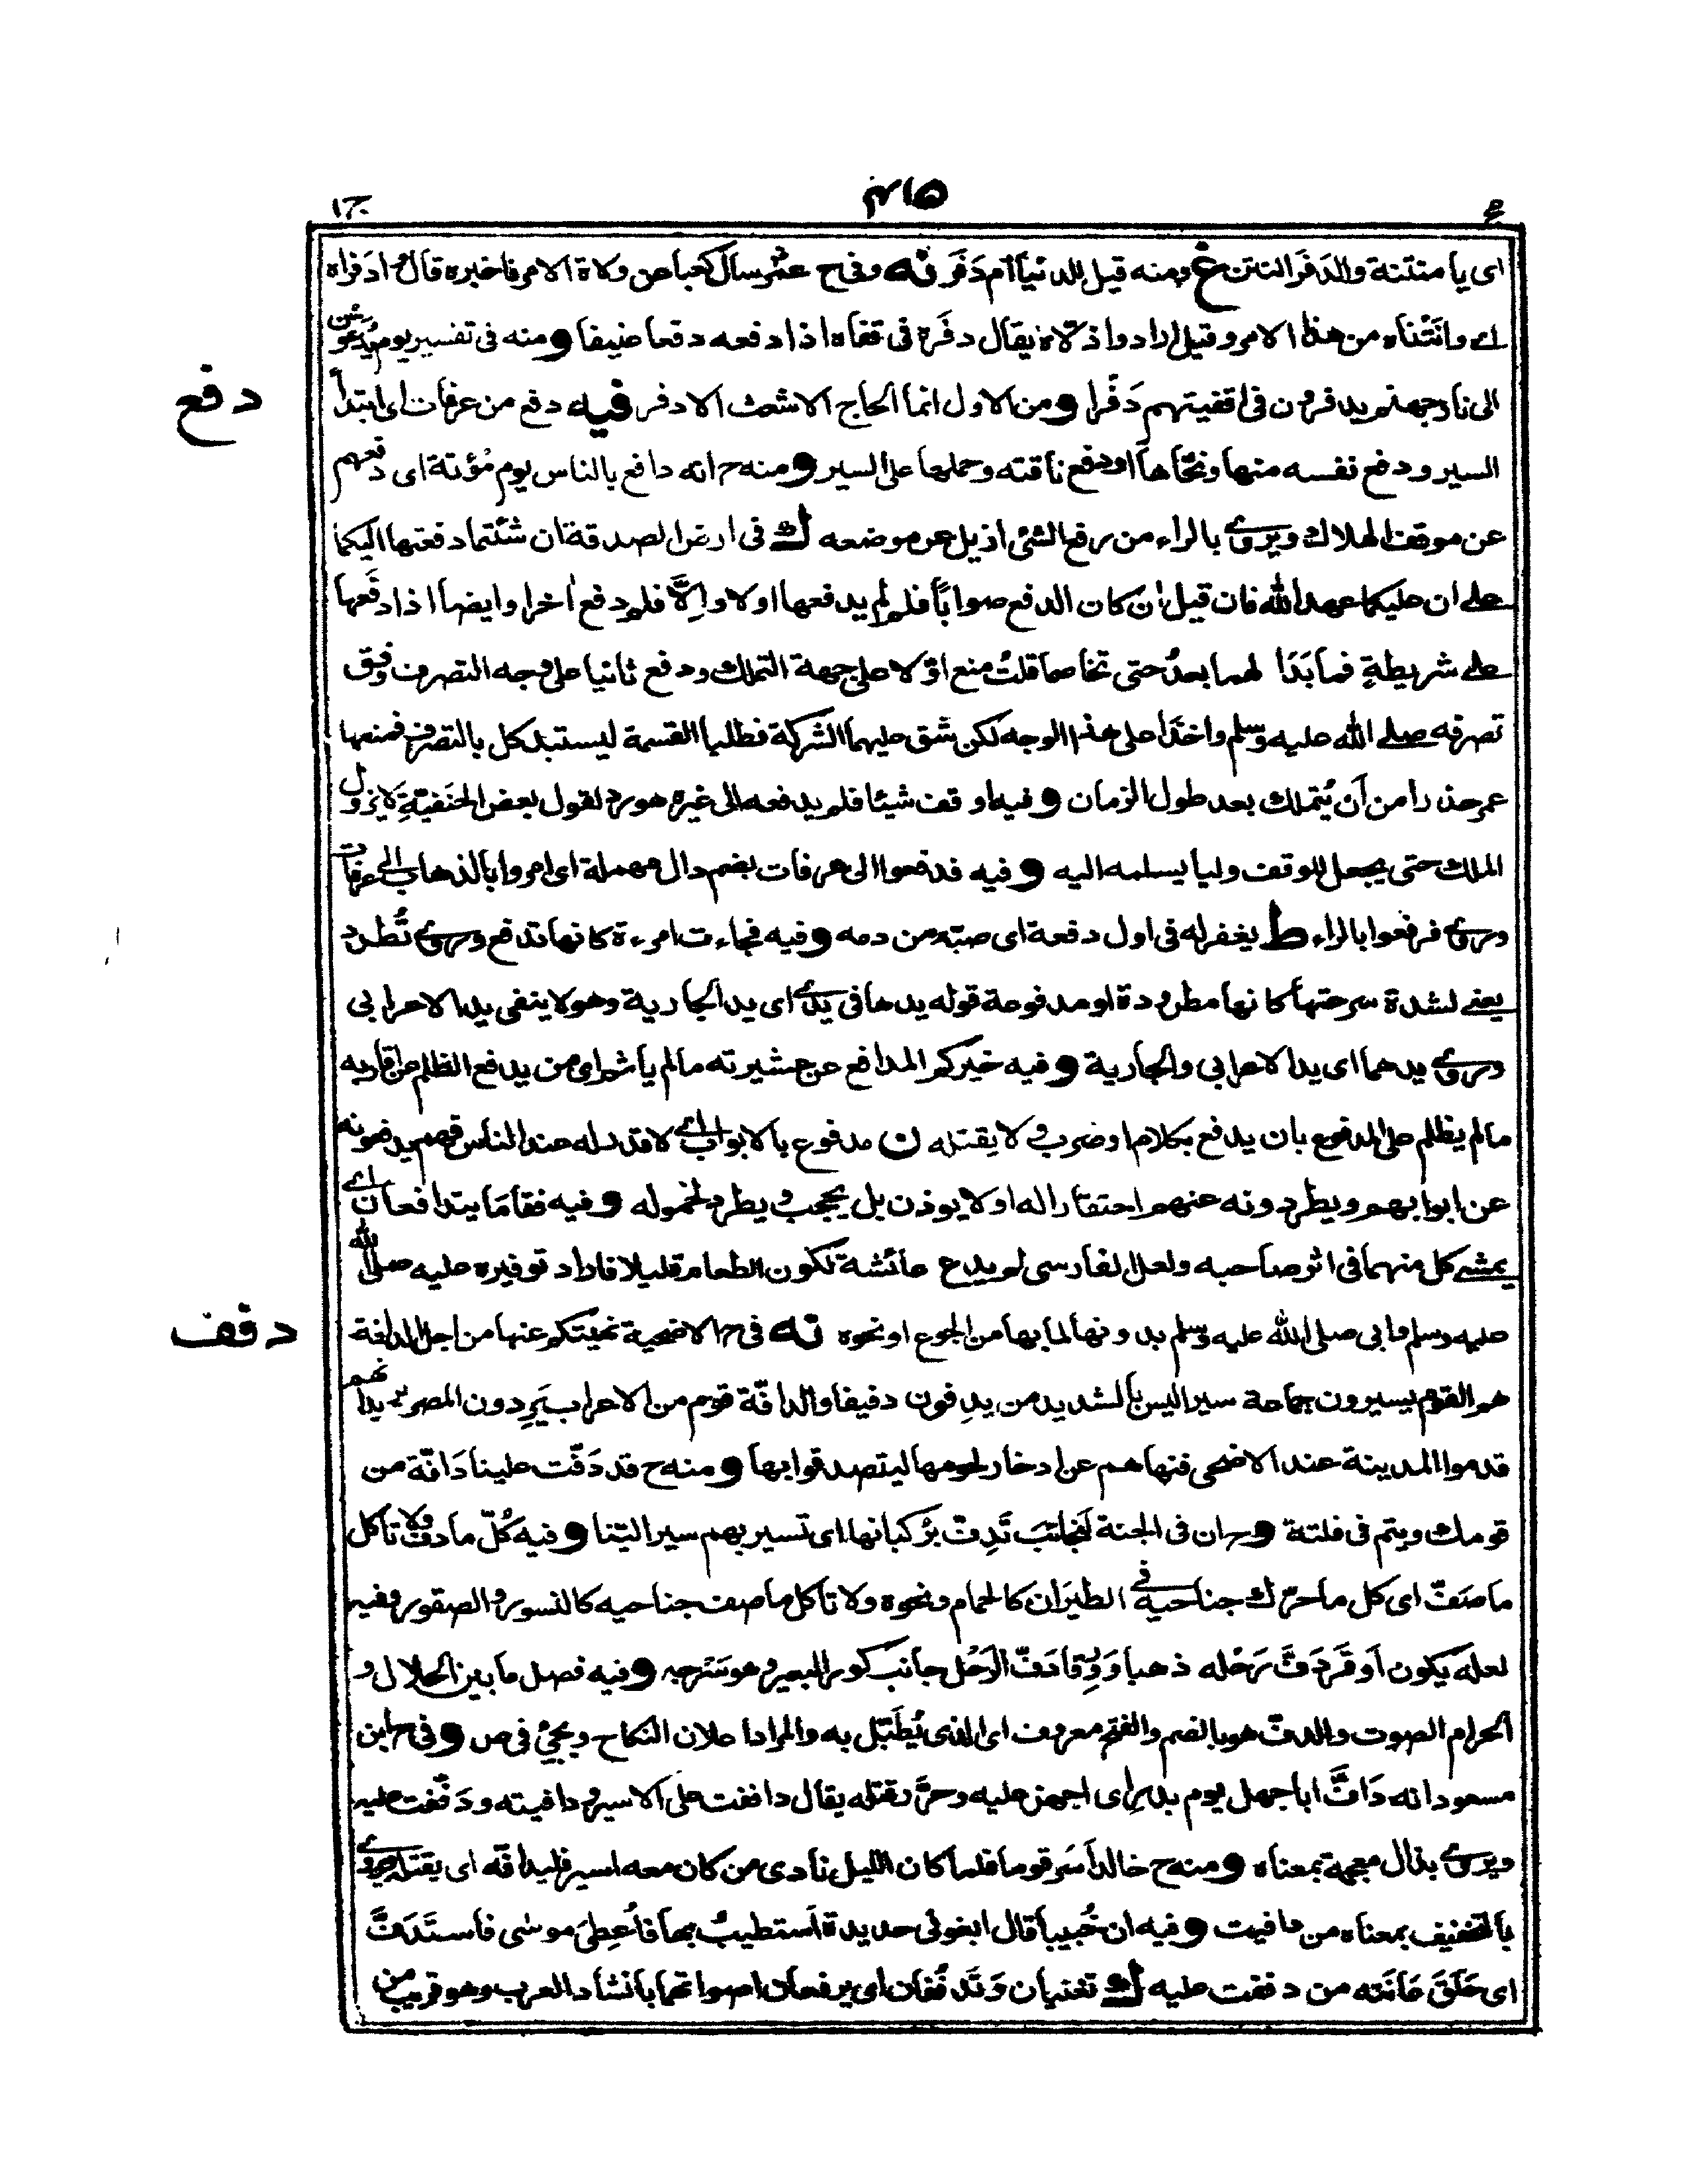 ج١
٤١٥
اى يا منتنة والدَفَر النتن غ ومنه قيل للدنيا أم دَفَر نه وفى ح عمر سأل كعبا عن ولاة الامر فاخبره قال وا دَفراه
ك وانَتْناه من هذا الامر وقيل اراد وا ذلاه يقال دفَرَه فى قفاه اذا دفعه دفعا عنيفا و منه فى تفسير يوم يُدعّون
الى نار جهنم يدفرون فى اقفيتهم دَفْرا و من الاول انما الحاج الاشعث الادفر فيه دفع من عرفات اى ابتدأ
دفع
السير ودفع نفسه منها ونحّاها او دفع ناقته وحملها على السير و منه ح انه دافع بالناس يوم مُؤتة اى دفعهم
عن موقف الهلاك ويروى بالراء من رفع الشئ ازيل عن موضعه ك فى ارض الصدقة ان شئتما دفعتها اليكما
على ان عليكما عهد الله فان قيل ان كان الدفع صوابًا فلم لم يدفعها اولا والَّا فلم دفع اخرا وايضا اذا دفَعها
على شريطةٍ فما بَدَا لهما بعدُ حتى تخاصما قلتُ منع اوّلا على جهة التملك ودفع ثانيا على وجه التصرف وفق
تصرفه صلى الله عليه وسلم واخذا على هذا الوجه لكن شق عليهما الشركة فطلبا القسمة ليستبد كل بالتصرف فمنعهما
عمر حذرا من أن يُتملك بعد طول الزمان و فيه اوقف شيئا فلم يدفعه الى غيره هو رد لقول بعض الحنَفيّةِ لا يزول
الملك حتى يجعل للوقف وليا يسلمه اليه و فيه فدفعوا الى عرفات بضم دال مهملة اى امروا بالذهاب الى عرفات
وروى فرفعوا بالراء ط يغفر له فى اول دفعة اى صبّة من دمه و فيه فجاءت امرءة كانها تدفع وروى تُطرد
يعنى لشدة سرعتها كانها مطرودة او مدفوعة قوله يدها فى يدى اى يد الجارية وهو لا ينفى يد الاعرابى
وروى يدهما اى يد الاعرابى والجارية و فيه خيركم المدافع عن عشيرته ما لم يأثم اى من يدفع الظلم عن اقاربه
ما لم يظلم على المدفوع بان يدفع بكلام او ضرب ولا يقتله ن مدفوع بالابواب اى لا قدر له عند الناس فهم يدفعونه
عن ابوابهم ويطردونه عنهم احتقارا له او لا يوذن بل يحجب ويطرد لخموله و فيه فقاما يتدافعان اى
يمشى كل منهما فى اثر صاحبه ولعل الفارسى لم يدع عائشة لكون الطعام قليلا فاراد توفيره عليه صلى الله
عليه وسلم فابى صلى الله عليه وسلم بدونها لما بها من الجوع او نحوه نه فى ح الاضحية نهيتكم عنها من اجل الدافّة
دفف
هم القوم يسيرون جماعة سيرا ليس بالشديد من يدِفون دفيفا والدافّة قوم من الاعراب يَرِدون المصر يريد انهم
قدموا المدينة عند الاضحى فنهاهم عن ادخار لحومها ليتصدقوا بها و منه ح قد دَفّت علينا دَافّة من
قومك ويتم فى فلتة و ح ان فى الجنة لنجائبَ تَدِفّ بركبانها اى تسير بهم سيرا لينا و فيه كُلّ ما دفّ ولا تاكل
ما صَفّ اى كل ما حرّك جناحيه فى الطيَران كالحمام ونحوه ولا تاكل ما صف جناحيه كالنسور والصقور وفيه
لعله يكون أوقَر دَفَّ رَحْله ذهبا ووَرِقا دَفّ الرَحْل جانب كور البعير وهو سَرْجه و فيه فصل ما بين الحلال و
الحرام الصوت والدفّ هو بالضم والفتح معروف اى الذى يُطَبّل به والمراد اعلان النكاح ويجئ فى ص و فى ح ابن
مسعود انه دَافَّ ابا جهل يوم بدر اى اجهز عليه وحرَّر قتله يقال داففت على الاسير ودافيته ودَفّفت عليه
ويروى بذال معجمة بمعناه و منه ح خالد أسَر قوما فلما كان الليل نادى من كان معه اسير فليدافّه اى يقتله وروى
بالتخفيف بمعناه من دافيت و فيه ان خُبيبا قال ابغونى حديدة أستطيبُ بها فأعطِىَ موسى فاستدَفَّ
اى حَلَقَ عَانَته من دففت عليه ك تغنيان وتَدفّفان اى يرفعان اصواتهما بانشاد العرب وهو قريب من